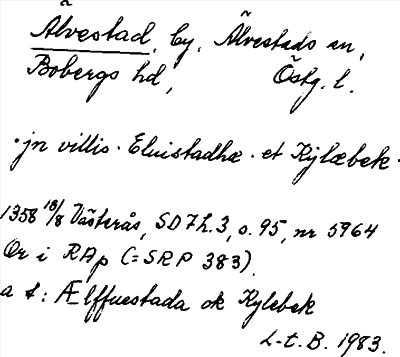 Älvestad, by, Älvestads sn,
Bobergs hd, Östg. l.
·jn villis· Eluistadhæ· et Kylæbek·
1358 18/8 Västerås, SD 7 h.3, s. 95, nr 5964
Or i RAp (= SRP 383).
a t: Ælffuestada ok Kylebek
L-t. B. 1983.